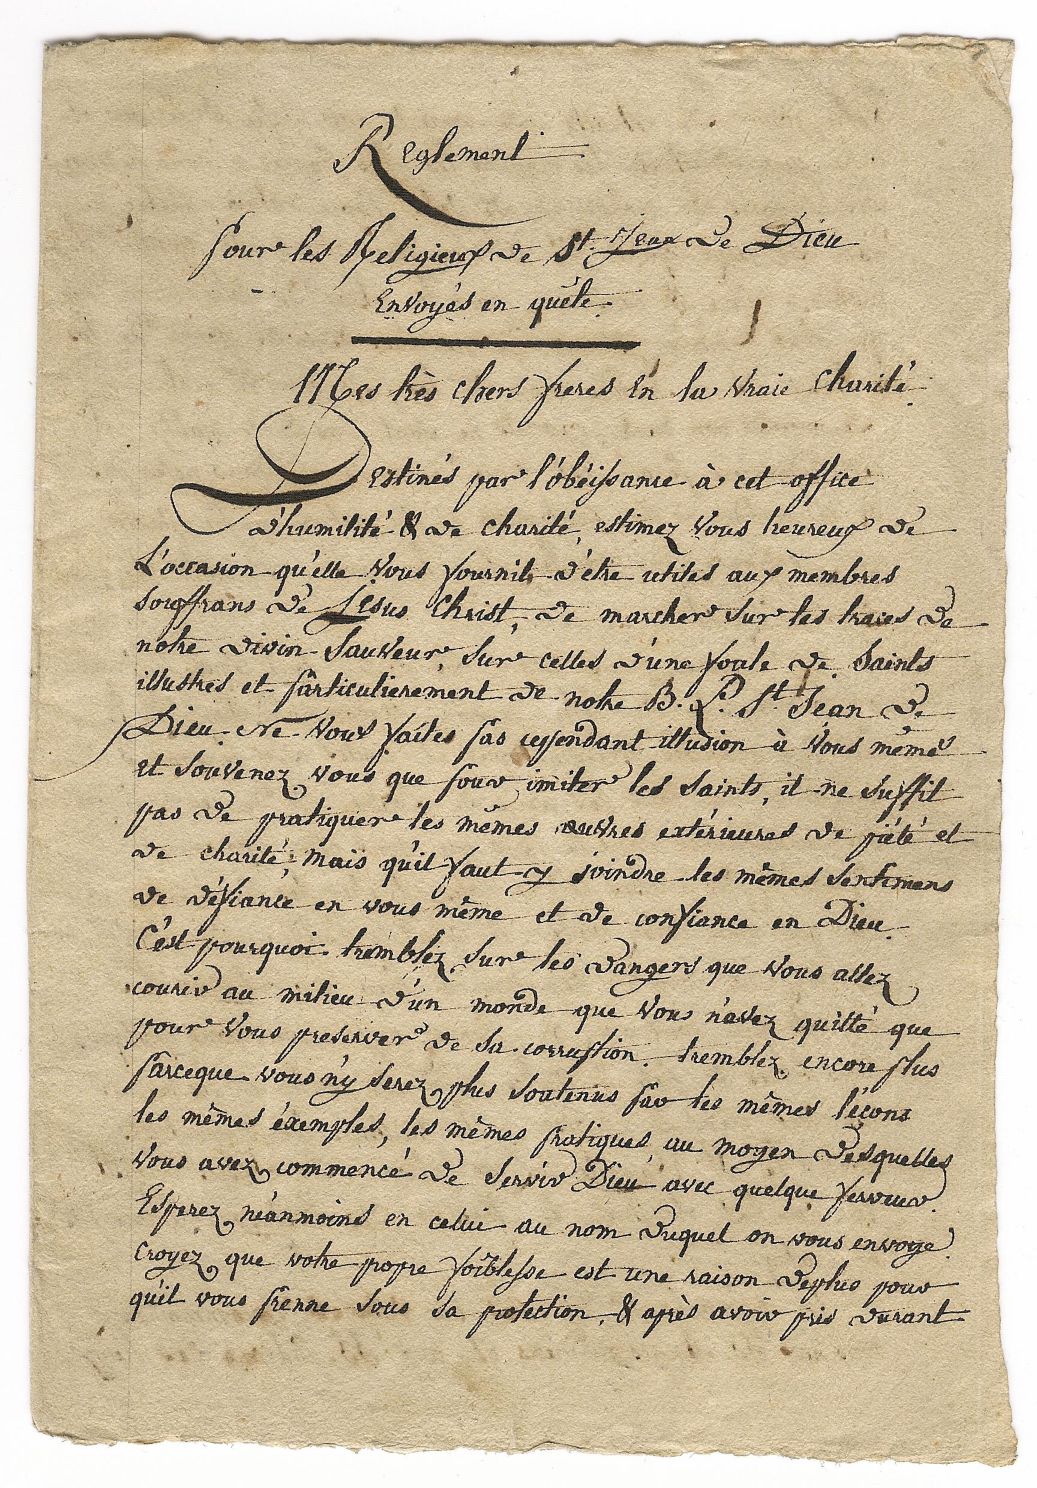 Reglement
pour les Religieux de St. Jean de Dieu
Envoyés en quête.
Mes très chers freres en la vraie charité.
Destinés par l'obéissance à cet office
d'humilité & de charité, estimez vous heureux de
l'occasion qu'elle vous fournit, d'être utiles aux membres
souffrans de Jesus Christ, de marcher sur les traces de
notre divin Sauveur, sur celles d'une foule de Saints
illustres et particulierement de notre B. P. St. Jean de
Dieu. Ne vous faites pas cependant illusion à vous même
et souvenez vous que pour imiter les Saints, il ne suffit
pas de pratiquer les mêmes œuvres extérieures de piété et
de charité; mais qu'il faut y joindre les mêmes sentimens
de défiance en vous même et de confiance en Dieu.
C'est pourquoi tremblez sur les dangers que vous allez
courir au milieu d'un monde que vous n'avez quitté que
pour vous preserver de sa corruption. tremblez encore plus
parceque vous n'y serez plus soutenus par les mêmes léçons
les mêmes éxemples, les mêmes pratiques, au moyen desquelles
vous avez commencé de servir Dieu avec quelque ferveur.
Esperez néanmoins en celui au nom duquel on vous envoye.
Croyez que votre propre foiblesse est une raison deplus pour
qu'il vous prenne sous sa protection. & après avoir pris durant